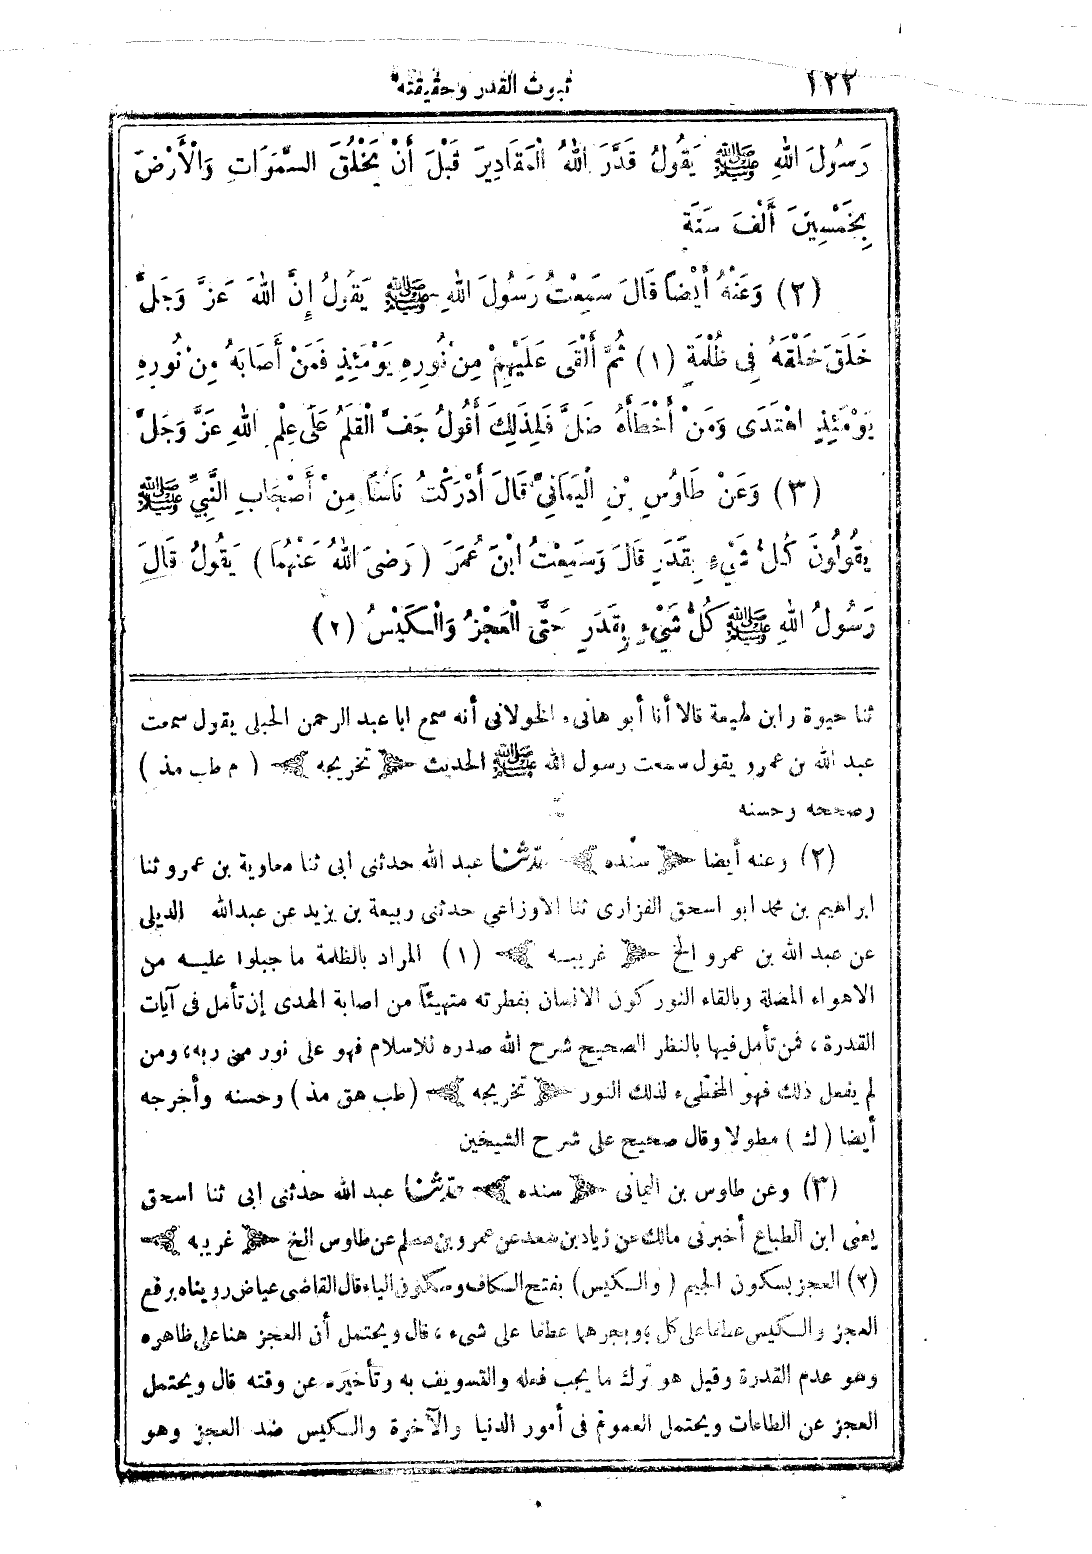 ١٢٢ ثبوت القدر وحقيقته
رَسُولَ اللهِ ﷺ يَقُولُ قَدَّرَ اللهُ الْمَقَادِيرَ قَبْلَ أَنْ يَخْلُقَ السَّمَوَاتِ وَالْأَرْضَ
بِخَمْسِينَ أَلْفَ سَنَةٍ
(٢) وَعَنْهُ أَيْضًا قَالَ سَمِعْتُ رَسُولَ اللهِ ﷺ يَقُولُ إِنَّ اللهَ عَزَّ وَجَلَّ
خَلَقَ خَلْقَهُ فِي ظُلْمَةٍ (١) ثُمَّ أَلْقَى عَلَيْهِمْ مِنْ نُورِهِ يَوْمَئِذٍ فَمَنْ أَصَابَهُ مِنْ نُورِهِ
يَوْمَئِذٍ اهْتَدَى وَمَنْ أَخْطَأَهُ ضَلَّ فَلِذَلِكَ أَقُولُ جَفَّ الْقَلَمُ عَلَى عِلْمِ اللهِ عَزَّ وَجَلَّ
(٣) وَعَنْ طَاوُسِ بْنِ الْيَمَانِيِّ قَالَ أَدْرَكْتُ نَاسًا مِنْ أَصْحَابِ النَّبِيِّ ﷺ
يَقُولُونَ كُلُّ شَيْءٍ بِقَدَرٍ قَالَ وَسَمِعْتُ ابْنَ عُمَرَ (رَضِيَ اللهُ عَنْهُمَا) يَقُولُ قَالَ
رَسُولُ اللهِ ﷺ كُلُّ شَيْءٍ بِقَدَرٍ حَتَّى الْعَجْزُ وَالْكَيْسُ (٢)
ثنا حيوة وابن لهيعة قالا أنا أبو هانىء الخولانى أنه سمع ابا عبد الرحمن الحبلى يقول سمعت
عبد الله بن عمرو يقول سمعت رسول الله ﷺ الحديث ﴿ تخريجه ﴾ (م طب مذ)
وصححه وحسنه
(٢) وعنه أيضا ﴿ سنده ﴾ حدثنا عبد الله حدثنى ابى ثنا معاوية بن عمرو ثنا
ابراهيم بن محمد ابو اسحق الفزارى ثنا الاوزاعي حدثنى ربيعة بن يزيد عن عبدالله الديلى
عن عبد الله بن عمرو الخ ﴿ غريبه ﴾ (١) المراد بالظلمة ما جبلوا عليه من
الاهواء المضلة وبالقاء النور كون الانسان بفطرته متهيئاً من اصابة الهدى إن تأمل فى آيات
القدرة ، فمن تأمل فيها بالنظر الصحيح شرح الله صدره للاسلام فهو على نور من ربه، ومن
لم يفعل ذلك فهو المخطىء لذلك النور ﴿ تخريجه ﴾ (طب هق مذ) وحسنه وأخرجه
أيضا (ك) مطولا وقال صحيح على شرح الشيخين
(٣) وعن طاوس بن اليمانى ﴿ سنده ﴾ حدثنا عبد الله حدثنى ابى ثنا اسحق
يعنى ابن الطباع أخبرنى مالك عن زياد بن سعد عن عمرو بن مسلم عن طاوس الخ ﴿ غريبه ﴾
(٢) العجز بسكون الجيم (والكيس) بفتح الكاف وسكون الياء قال القاضى عياض رويناه برفع
العجز والكيس عطفا على كل، وبجرهما عطفا على شىء ، قال ويحتمل أن العجز هنا على ظاهره
وهو عدم القدرة وقيل هو ترك ما يجب فعله والتسويف به وتأخيره عن وقته قال ويحتمل
العجز عن الطاعات ويحتمل العموم فى أمور الدنيا والآخرة والكيس ضد العجز وهو